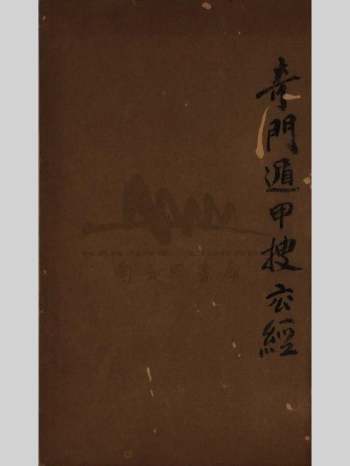 奇門遁甲搜玄經